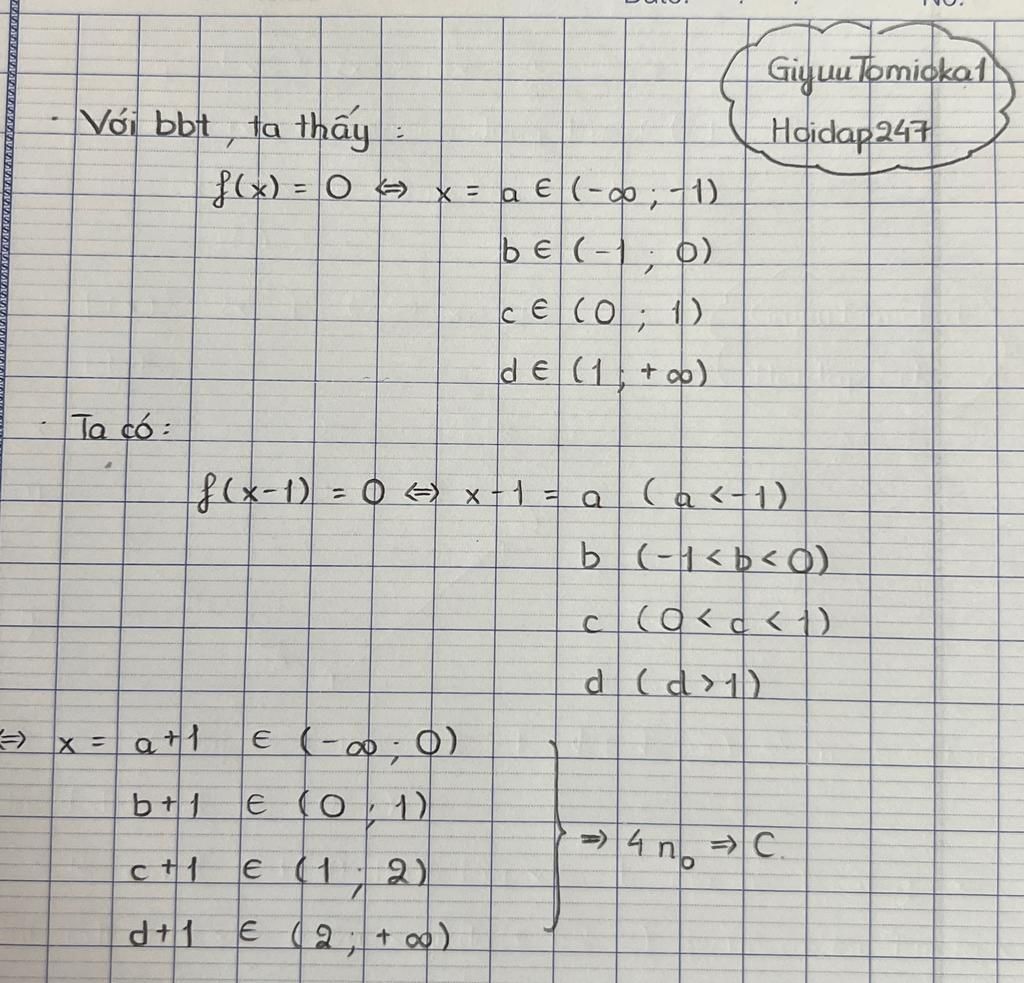 Date: No.
GiyuuTomioka1
Hoidap247
· Với bbt, ta thấy :
f(x) = 0 ⇔ x = a ∈ (-∞ ; -1)
b ∈ (-1 ; 0)
c ∈ (0 ; 1)
d ∈ (1 ; +∞)
· Ta có :
f(x-1) = 0 ⇔ x-1 = a (a < -1)
b (-1 < b < 0)
c (0 < c < 1)
d (d > 1)
⇔ x = a+1 ∈ (-∞ ; 0)
b+1 ∈ (0 ; 1)
c+1 ∈ (1 ; 2)
d+1 ∈ (2 ; +∞)
⇒ 4 no ⇒ C.